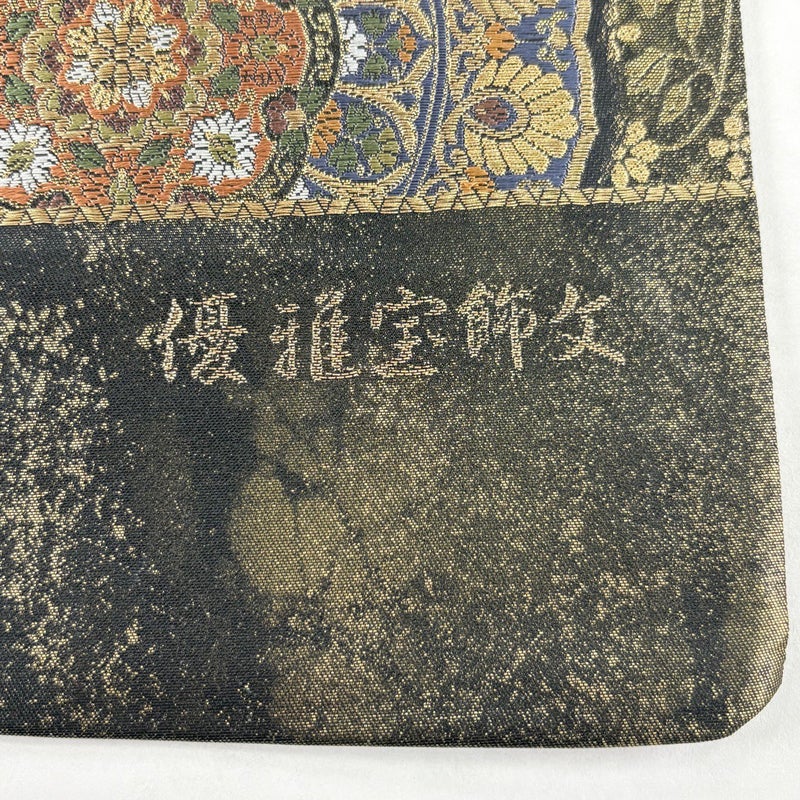 優雅宝飾文